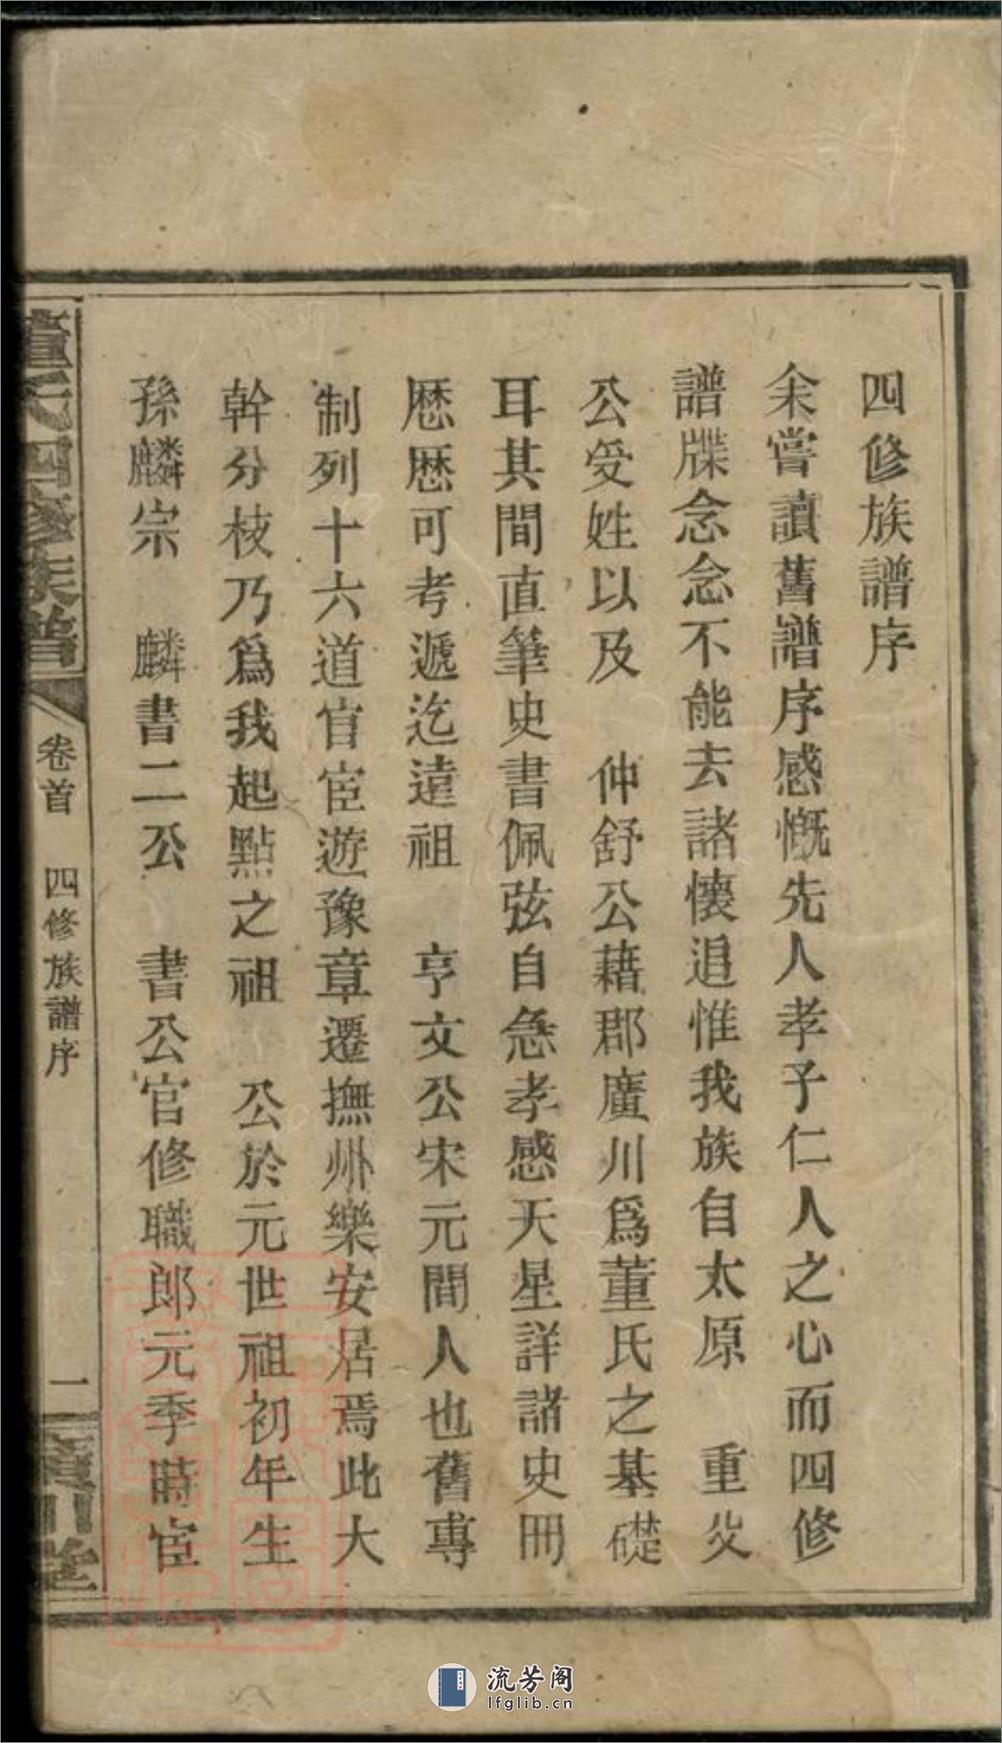 四修族譜序
余嘗讀舊譜序感慨先人孝子仁人之心而四修
譜牒念念不能去諸懷追惟我族自太原　重父
公受姓以及　仲舒公藉郡廣川爲董氏之基礎
耳其間直筆史書佩弦自急孝感天星詳諸史冊
歷歷可考遞迄遠祖　亨文公宋元間人也舊專
制列十六道官宦遊豫章遷撫州樂安居焉此大
幹分枝乃爲我起點之祖　公於元世祖初年生
孫麟宗　麟書二公　書公官修職郎元季時宦
董氏四修族譜
卷首　四修族譜序
一
廣川堂
流芳阁
lfglib.cn